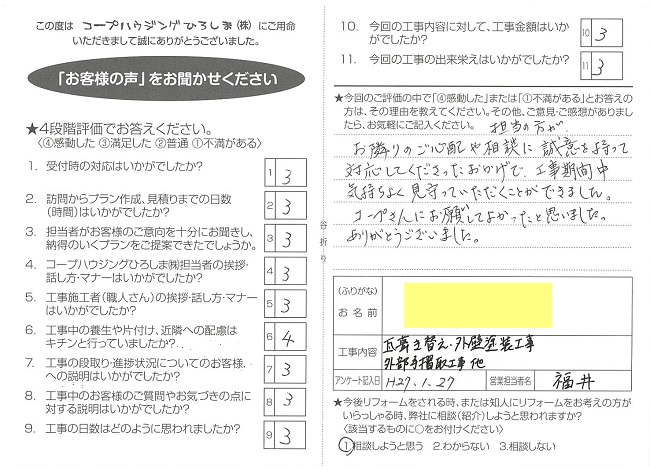 この度は コープハウジングひろしま(株) にご用命
いただきまして誠にありがとうございました。
「お客様の声」をお聞かせください
★4段階評価でお答えください。
〈④感動した ③満足した ②普通 ①不満がある〉
1. 受付時の対応はいかがでしたか?
1 3
2. 訪問からプラン作成、見積りまでの日数
(時間)はいかがでしたか?
2 3
3. 担当者がお客様のご意向を十分にお聞きし、
納得のいくプランをご提案できたでしょうか。
3 3
4. コープハウジングひろしま㈱担当者の挨拶・
話し方・マナーはいかがでしたか?
4 3
5. 工事施工者(職人さん)の挨拶・話し方・マナー
はいかがでしたか?
5 3
6. 工事中の養生や片付け、近隣への配慮は
キチンと行っていましたか?
6 4
7. 工事の段取り・進捗状況についてのお客様、
への説明はいかがでしたか?
7 3
8. 工事中のお客様のご質問やお気づきの点に
対する説明はいかがでしたか?
8 3
9. 工事の日数はどのように思われましたか?
9 3
谷折り
10. 今回の工事内容に対して、工事金額はいか
がでしたか?
10 3
11. 今回の工事の出来栄えはいかがでしたか?
11 3
★今回のご評価の中で「④感動した」または「①不満がある」とお答えの
方は、その理由を教えてください。その他、ご意見・ご感想がありまし
たら、お気軽にご記入ください。
担当の方が、
お隣りのご心配や相談に誠意を持って
対応してくださったおかげで、工事期間中
気持ちよく見守っていただくことができました。
コープさんにお願してよかったと思いました。
ありがとうございました。
(ふりがな)
お名前
工事内容
瓦葺き替え・外壁塗装工事
外部手摺取工事 他
アンケート記入日 H27.1.27 営業担当者名 福井
★今後リフォームをされる時、または知人にリフォームをお考えの方が
いらっしゃる時、弊社に相談(紹介)しようと思われますか?
〈該当するものに○をお付けください〉
1.相談しようと思う 2.わからない 3.相談しない